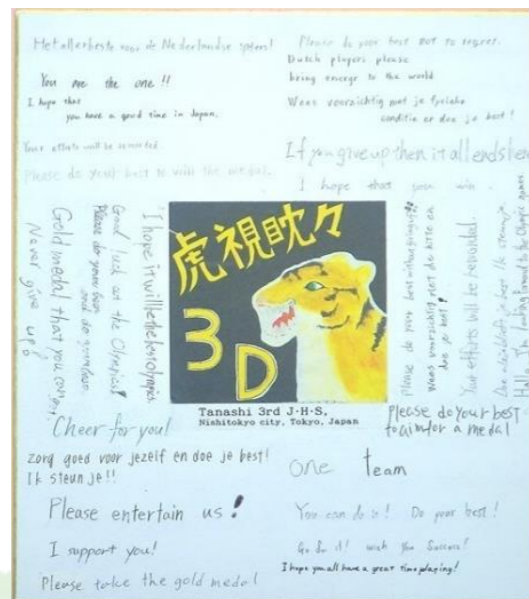 Het allerbeste voor de Nederlandse spelers!
You are the one!!
I hope that
you have a good time in Japan.
Your efforts will be rewarded.
Please do your best to win the medal.
Please do your best not to regret.
Dutch players please
bring energy to the world
Wees voorzichtig met je fysieke
conditie en doe je best!
If you give up then it all ends here
I hope that you win.
Never give up!
Gold medal that you can get.
Please do your best
Good luck at the Olympics!
I hope it will be the best olympics.
虎視眈々
3D
Tanashi 3rd J-H-S,
Nishitokyo city, Tokyo, Japan
Please do your best without giving up!!
Wees voorzichtig met de hitte en
doe je best!
Your efforts will be rewarded.
je best Ik steun je.
Hello. I'm looking forward to the Olympic games
Please do your best
to aim for a medal
Cheer for you!
zorg goed voor jezelf en doe je best!
Ik steun je!!
one team
Please entertain us!
You can do it! Do your best!
I support you!
Go for it! wish you success!
I hope you all have a great time playing!
Please take the gold medal